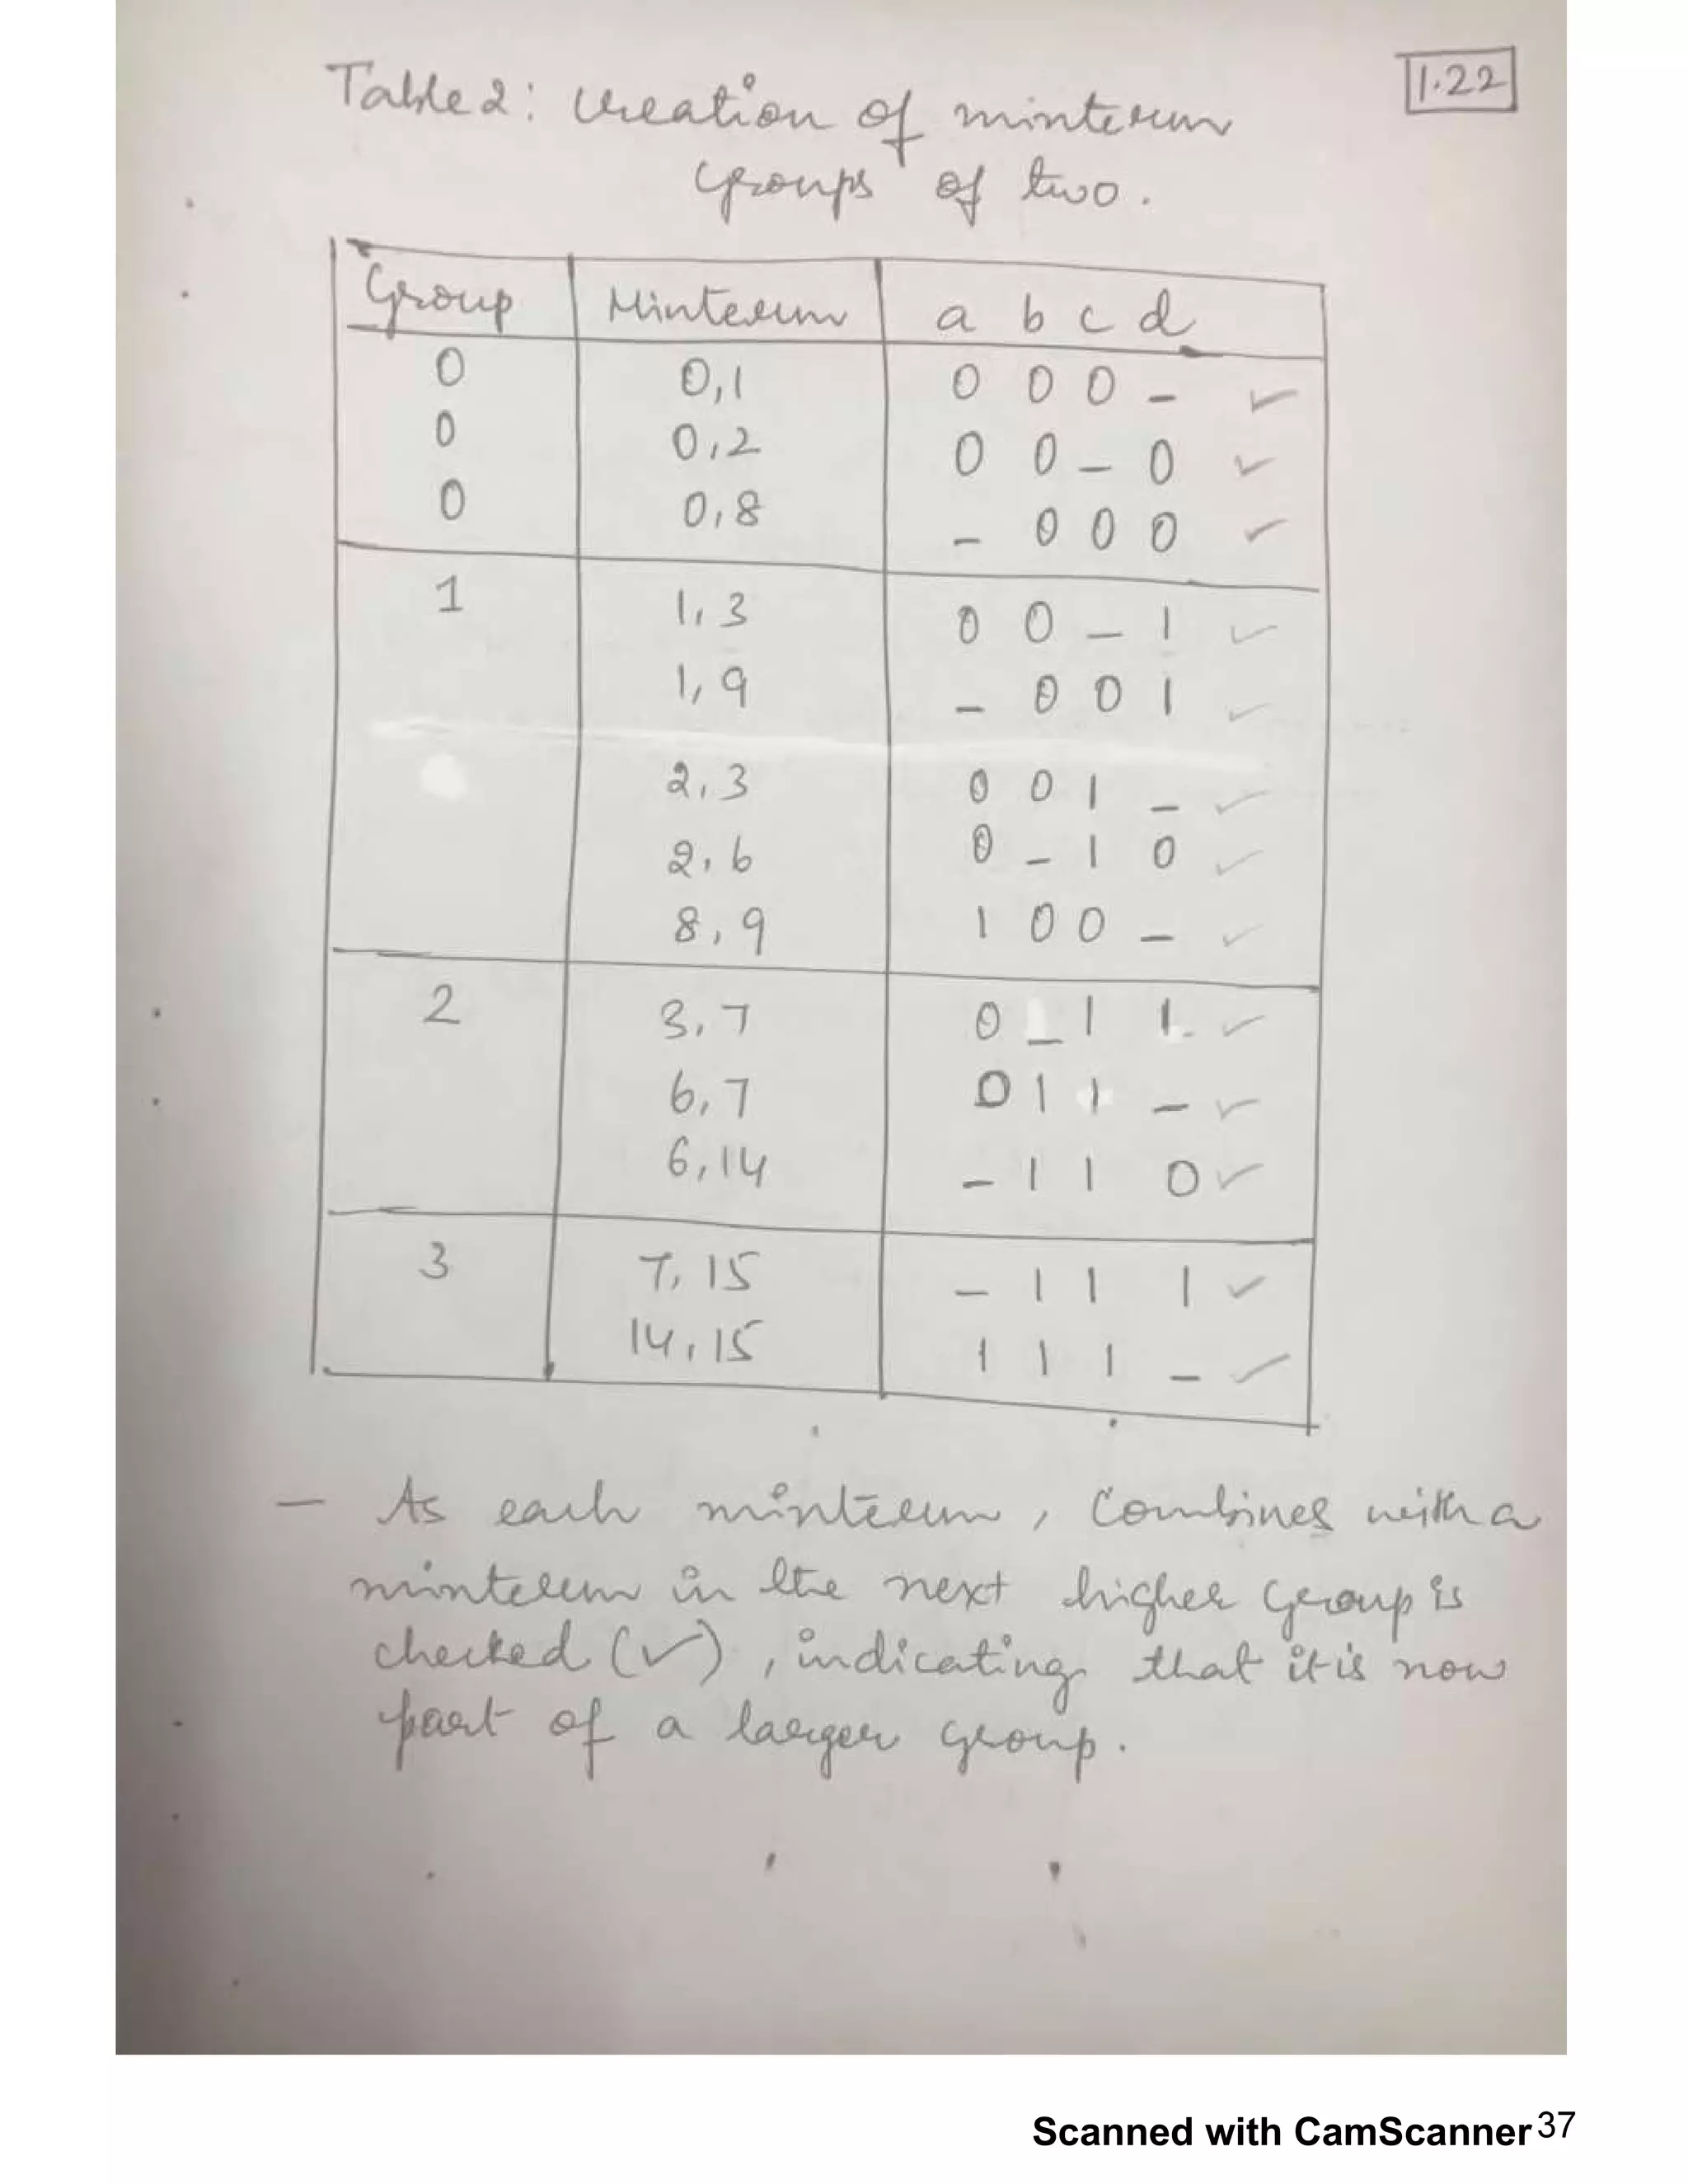 1.22
Table 2: Creation of minterm
groups of two.
Group Minterm a b c d
0 0,1 0 0 0 - ✓
0 0,2 0 0 - 0 ✓
0 0,8 - 0 0 0 ✓
1 1,3 0 0 - 1 ✓
1,9 - 0 0 1 ✓
2,3 0 0 1 - ✓
2,6 0 - 1 0 ✓
8,9 1 0 0 - ✓
2 3,7 0 - 1 1 ✓
6,7 0 1 1 - ✓
6,14 - 1 1 0 ✓
3 7,15 - 1 1 1 ✓
14,15 1 1 1 - ✓
- As each minterm, Combines with a
minterm in the next higher group is
checked (✓), indicating that it is now
part of a larger group.
Scanned with CamScanner 37